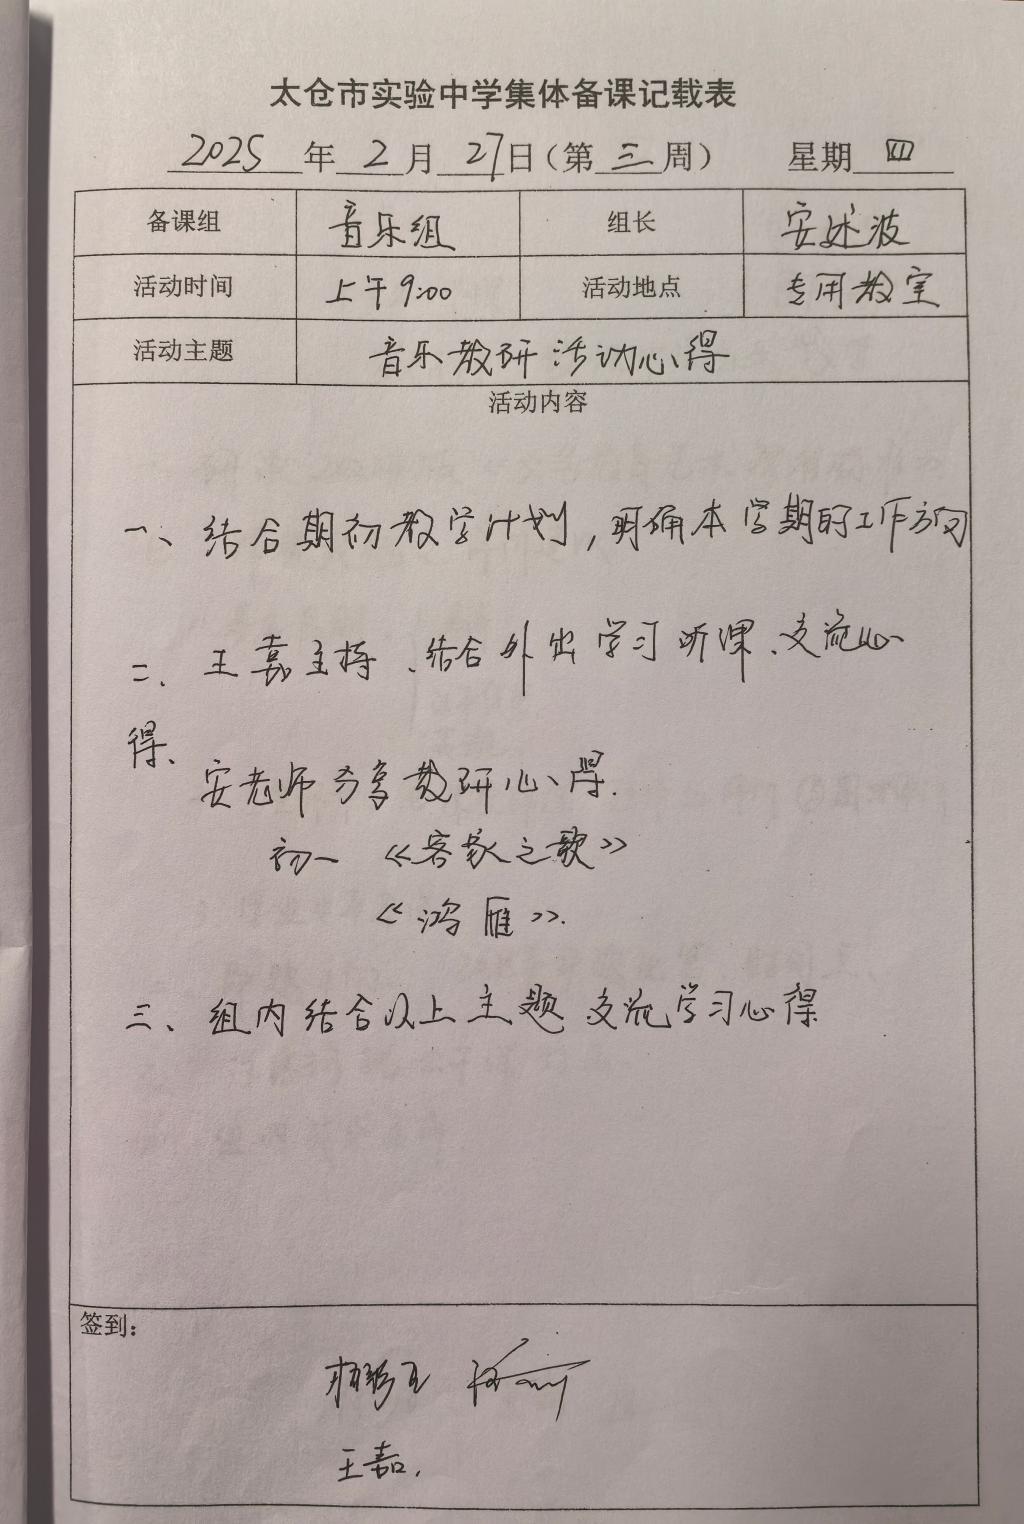 太仓市实验中学集体备课记载表
2025年2月27日（第三周） 星期四
备课组 音乐组 组长 安述波
活动时间 上午9:00 活动地点 专用教室
活动主题 音乐教研活动心得
活动内容
一、结合期初教学计划，明确本学期的工作方向
二、王嘉主持、结合外出学习听课、交流心
得、
安老师分享教研心得.
初一 《客家之歌》
《鸿雁》.
三、组内结合以上主题交流学习心得
签到：
王嘉.